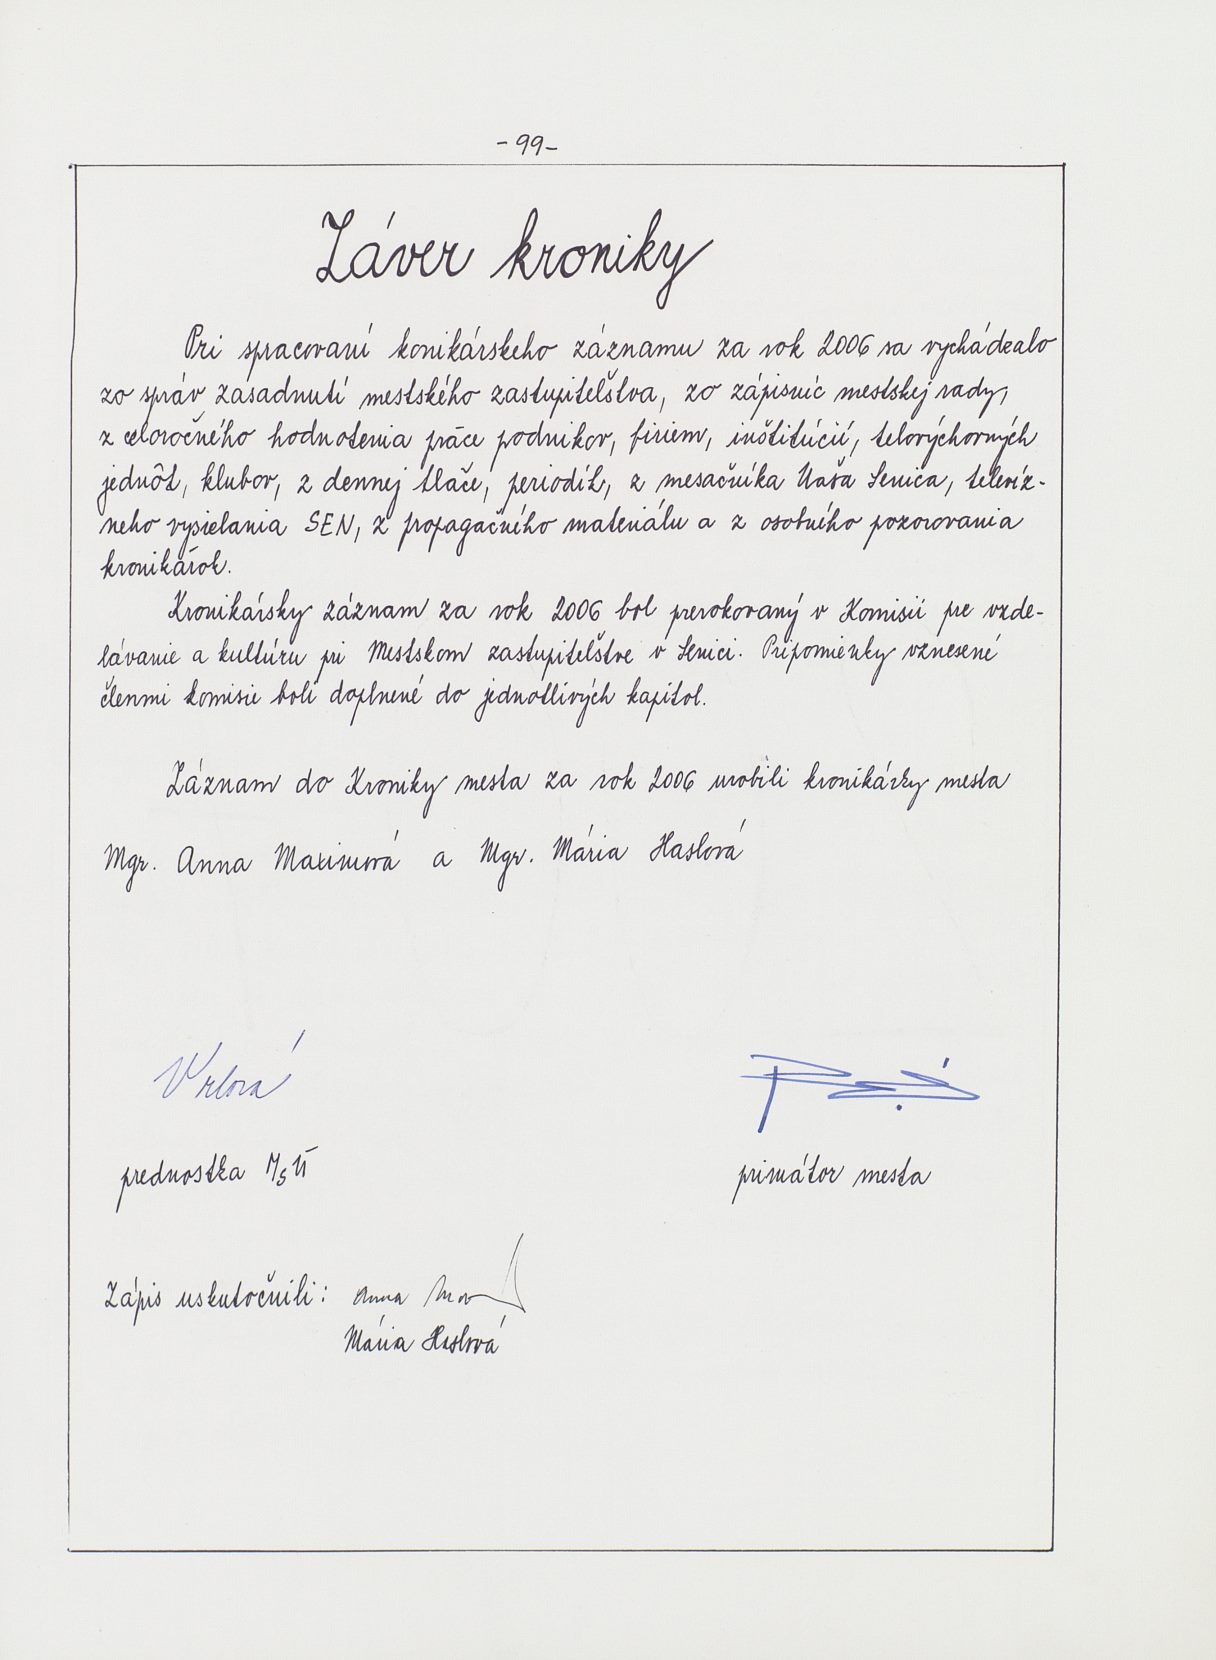 - 99 -
Záver kroniky
Pri spracovaní konikárskeho záznamu za rok 2006 sa vychádzalo
zo správ zasadnutí mestského zastupiteľstva, zo zápisníc mestskej rady,
z celoročného hodnotenia práce podnikov, firiem, inštitúcií, telovýchovných
jednôt, klubov, z dennej tlače, periodík, z mesačníka Naša Senica, televíz-
neho vysielania SEN, z propagačného materiálu a z osobného pozorovania
kronikárok.
Kronikársky záznam za rok 2006 bol prerokovaný v Komisií pre vzde-
lávanie a kultúru pri Mestskom zastupiteľstve v Senici. Pripomienky vznesené
členmi komisie boli doplnené do jednotlivých kapitol.
Záznam do Kroniky mesta za rok 2006 urobili kronikárky mesta
Mgr. Anna Maximová a Mgr. Mária Haslová
prednostka MsÚ
primátor mesta
Zápis uskutočnili: Anna
Mária Haslová